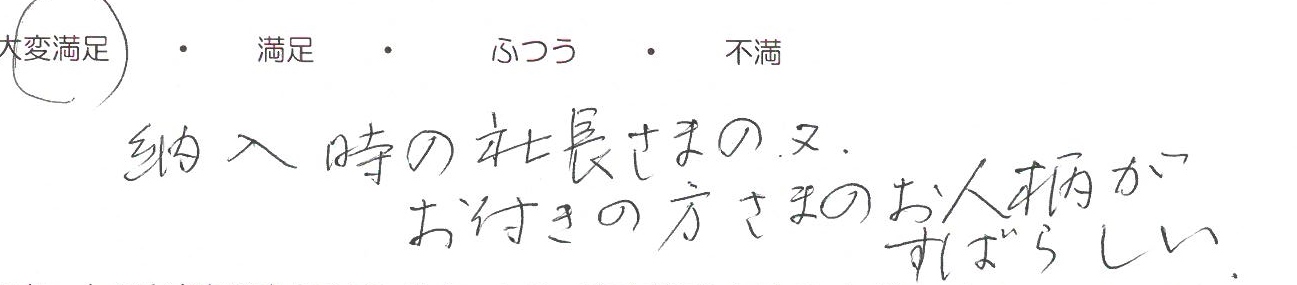 大変満足 ・ 満足 ・ ふつう ・ 不満
納入時の社長さまの.又.
お付きの方さまのお人柄が
すばらしい.